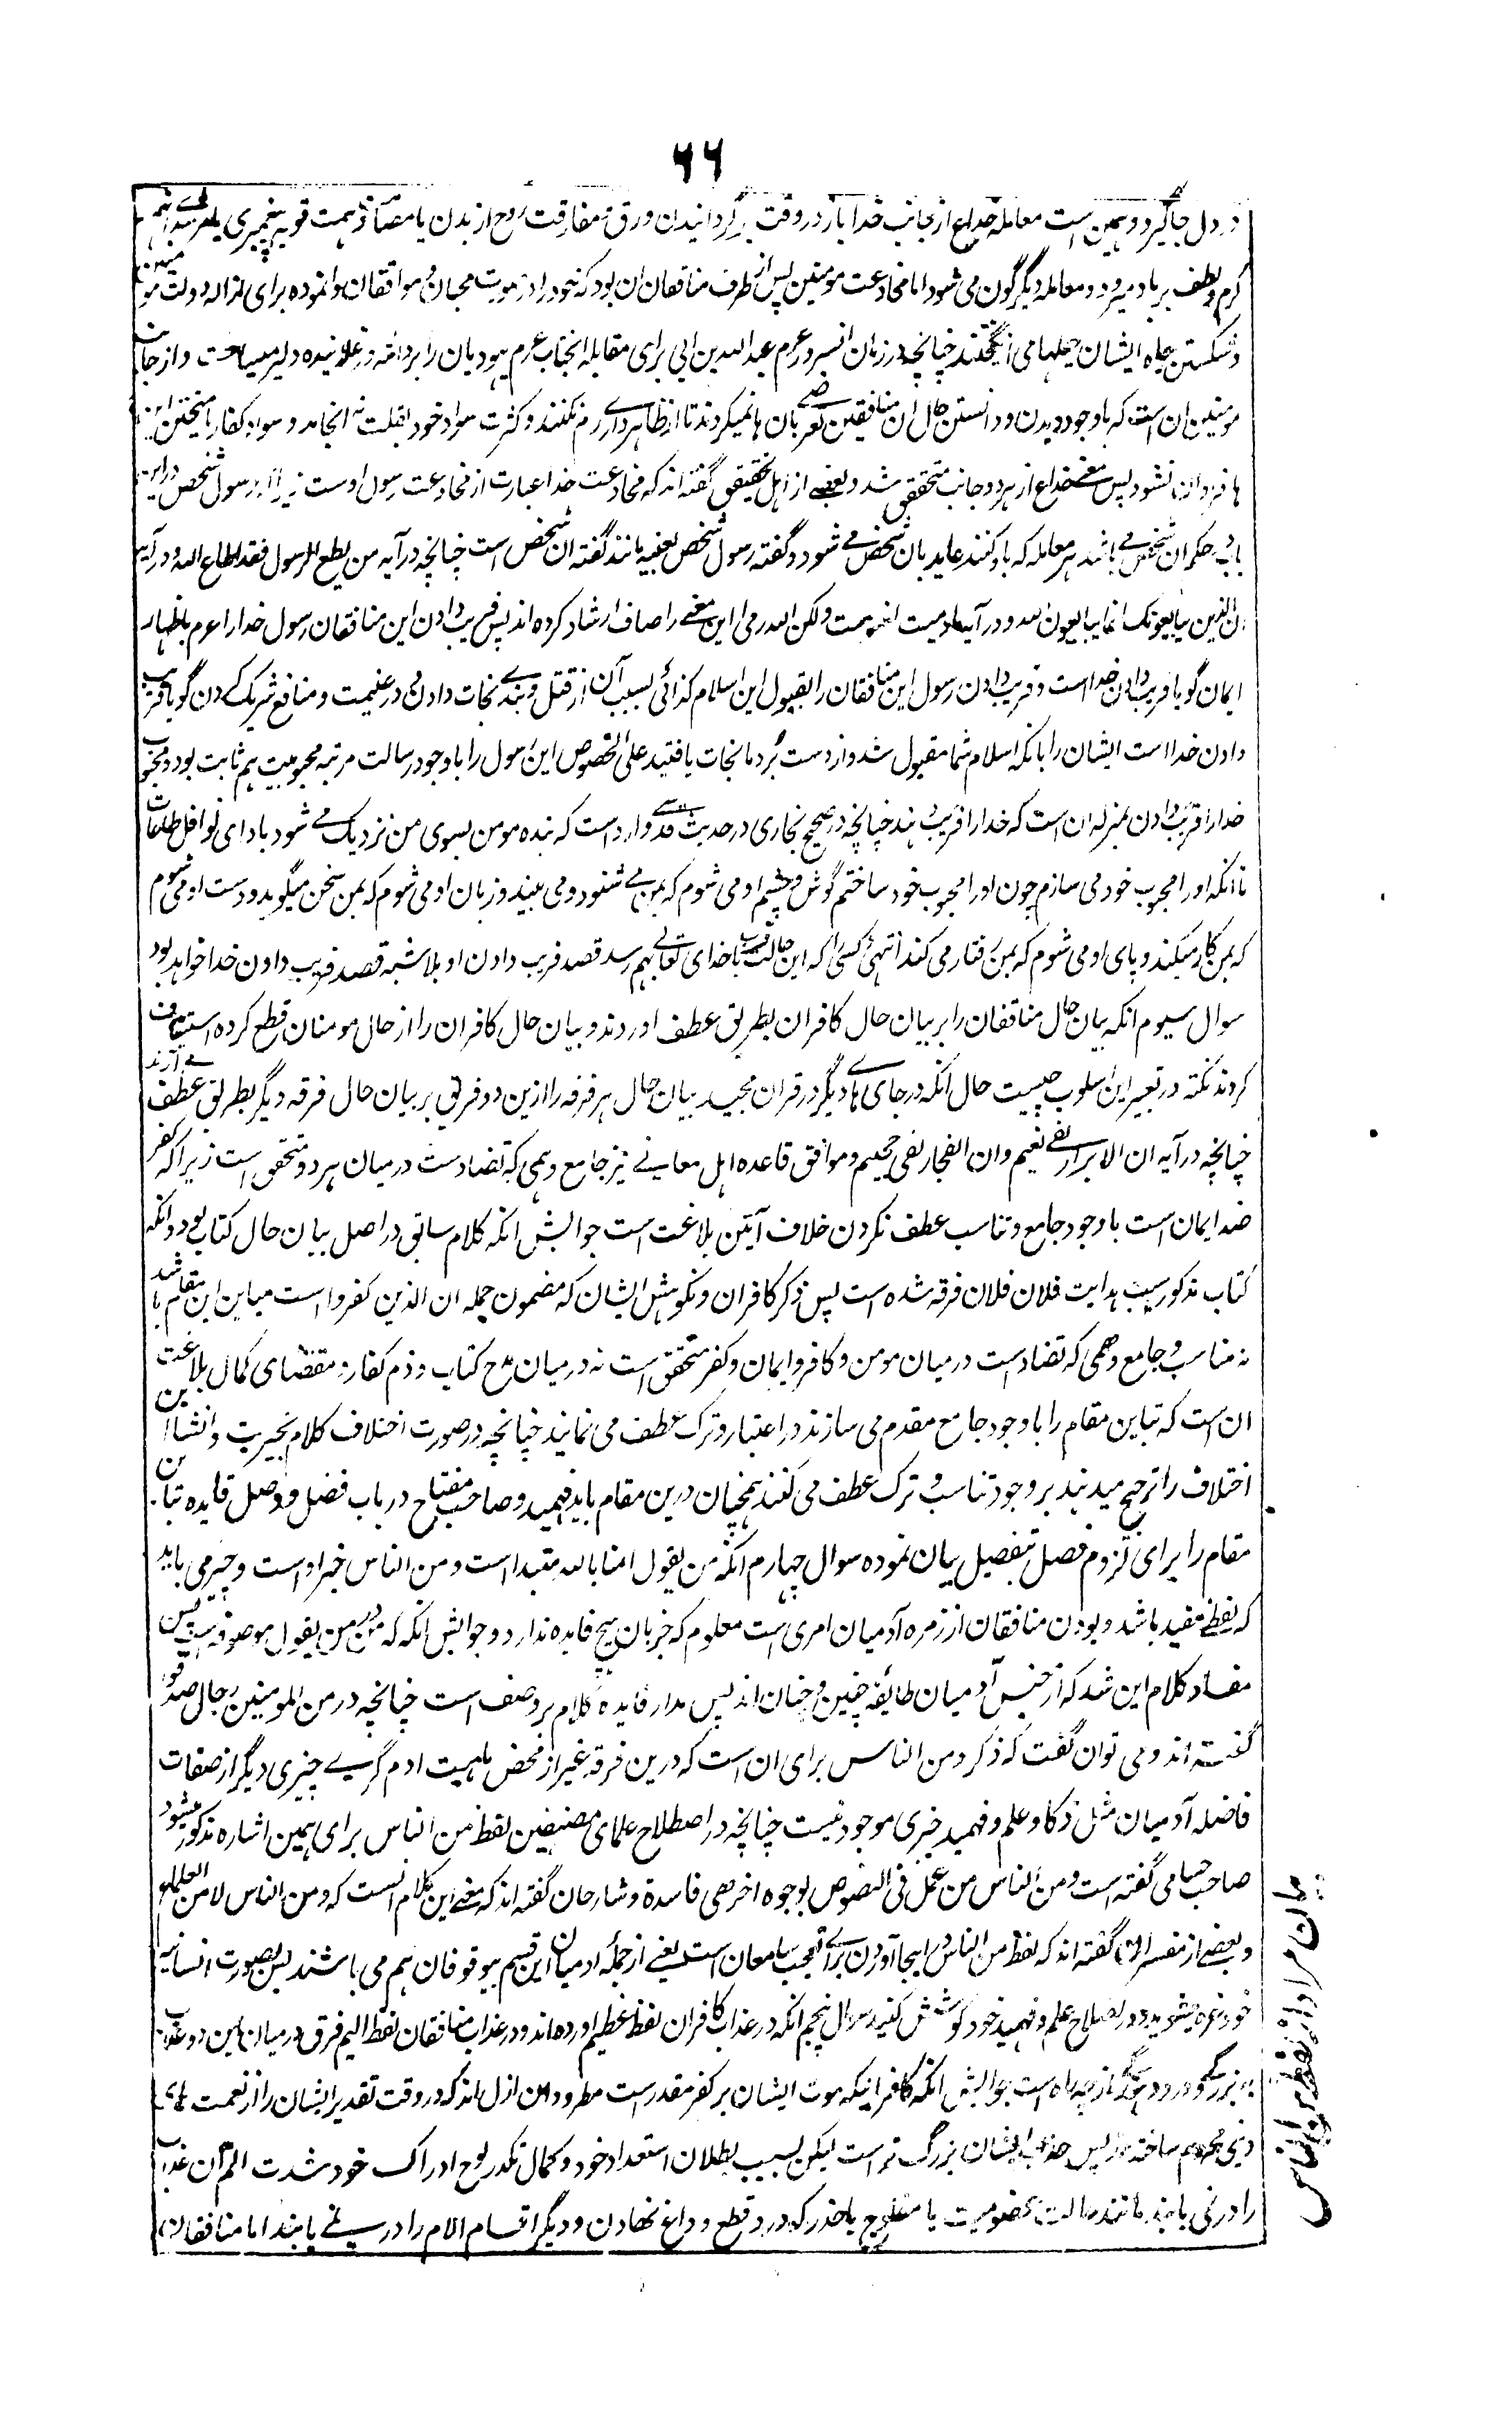 ۶۶
در دل جا گیرد و همین است معامله خداع از جانب خدا باز در وقت برگردانیدن ورق مفارقت روح از بدن یا مصادف همت قویه پیغمبری
کرم و لطف بر باد میرود و معامله دیگرگون می شود اما مخادعت مومنین پس از طرف منافقان ان بود که خود را در صورت محبان و موافقان وانموده برای ازاله دولت
و شکستن جاه ایشان حیلها می انگیختند چنانچه در زمان انسرور عرم عبد الله بن ابی برای مقابله انجناب عرم یهودیان را برداشته و غلانیده دلیر میساخت و از جانب
مومنین ان است که باوجود دیدن و دانستن حال ان منافقین تعرضے بان ها نمیکردند تا از ظاهرداری رم نکنند و کثرت سواد خود بقلت نه انجامد و سواد کفار بامیختن این
ها فزوان نشود پس معنے خداع از هر دو جانب متحقق شد و بعضے از اهل تحقیق گفته اند که مخادعت خدا عبارت از مخادعت رسول اوست زیرا که رسول شخص در این
باب حکم ان شخص مے باشد هر معامله که باو کنند عاید بان شخص مے شود و گفته رسول شخص بعینه مانند گفته ان شخص است چنانچه در آیه من یطع الرسول فقد اطاع الله و در آیه
ان الذین یبایعونک انما یبایعون الله و در آیه و ما رمیت اذ رمیت ولکن الله رمی این معنے را صاف ارشاد کرده اند پس فریب دادن این منافقان رسول خدا را عرم باظهار
ایمان گویا فریب دادن خدا است و فریب دادن رسول این منافقان را بقبول این اسلام کذائی بسبب آن از قتل و بند نجات دادن و در غنیمت و منافع شریک کردن گویا فریب
دادن خدا است ایشان را بانکه اسلام شما مقبول شد و از دست برد ما نجات یافتید علی الخصوص این رسول را باوجود رسالت مرتبه محبوبیت هم ثابت بود و محبوب
خدا را فریب دادن بمنزله ان است که خدا را فریب دهند چنانچه در صحیح بخاری در حدیث قدسے وارد است که بنده مومن بسوی من نزدیک مے شود بادای نوافل طاعات
تا انکه او را محبوب خود می سازم چون او را محبوب خود ساختم گوش و چشم او می شوم که بمن مے شنود و می بیند و زبان او می شوم که بمن سخن میگوید و دست او می شوم
که بمن کار میکند و پای او می شوم که بمن رفتار می کند انتهی کسی را که این حالت قرب با خدای تعالے بهم رسد قصد فریب دادن او بلا شبهه قصد فریب دادن خدا خواهد بود
سوال سیوم انکه بیان حال منافقان را بر بیان حال کافران بطریق عطف اوردند و بیان حال کافران را از حال مومنان قطع کرده استیناف
کردند نکته در تعبیر این اسلوب چیست حال انکه در جای ها دیگر در قران مجید بیان حال هر فرقه را ازین دو فریق بر بیان حال فرقه دیگر بطریق عطف مے آرند
چنانچه در آیه ان الابرار لفے نعیم وان الفجار لفی جحیم و موافق قاعده اهل معانے نیز جامع وهمی که تضاد است درمیان هر دو متحقق است زیرا که کفر
ضد ایمان است باوجود جامع و تناسب عطف نکردن خلاف آیین بلاغت است جوابش انکه کلام سابق در اصل بیان حال کتاب بود و انکه
کتاب مذکور سبب هدایت فلان فلان فرقه شده است پس ذکر کافران و نکوهش ایشان که مضمون جمله ان الذین کفروا است مباین این مقام باشد
نه مناسب و جامع وهمی که تضاد است درمیان مومن و کافر و ایمان و کفر متحقق است نه درمیان مدح کتاب و ذم کفار و مقتضای کمال بلاغت
ان است که تباین مقام را باوجود جامع مقدم می سازند در اعتبار و ترک عطف می نمایند چنانچه در صورت اختلاف کلام بخبریت و انشا این
اختلاف را ترجیح میدهند بر وجود تناسب و ترک عطف می کنند همچنان درین مقام باید فهمید و صاحب مفتاح در باب فصل و وصل قایده تباین
مقام را برای لزوم فصل بتفصیل بیان نموده سوال چهارم انکه من یقول امنا بالله مبتدا است و من الناس خبر او است و خبر می باید
که لفظے مفید باشد و بودن منافقان از زمره آدمیان امری است معلوم که خبر بان هیچ فایده ندارد و جوابش انکه که من در من یقول موصوفه است پس
مفاد کلام این شد که از جنس آدمیان طائفه چنین و چنان اند پس مدار فایده کلام بر وصف است چنانچه در من المومنین رجال صدقوا
گفته اند و می توان گفت که ذکر و من الناس برای ان است که درین فرقه غیر از محض ماهیت ادم گری چیزی دیگر از صفات
فاضله آدمیان مثل ذکا و علم و فهمید چیزی موجود نیست چنانچه در اصطلاح علمای مصنفین لفظ من الناس برای همین اشاره مذکور میشود
صاحب حسامی گفته است و من الناس من عمل فی النصوص بوجوه اخر هی فاسدة و شارحان گفته اند که معنے این کلام انست که و من الناس لا من العلماء
و بعضے از مفسران گفته اند که لفظ من الناس اینجا آوردن برای تعجب سامعان است یعنے از جمله ادمیان این قسم بیوقوفان هم می باشند پس بصورت انسانیه
خود غره مشوید و در اصلاح علم و فهمید خود کوشش کنید سوال پنجم انکه در عذاب کافران لفظ عظیم اورده اند و در عذاب منافقان لفظ الیم فرق درمیان این دو عذاب
به بزرگے و دردهندگے از چه راه است جوابش انکه کافرانیکه موت ایشان بر کفر مقدر است مطرودان ازل اند که در وقت تقدیر ایشان را از نعمت های
دینی محروم ساخته اند پس عذاب ایشان بزرگ تر است لیکن بسبب بطلان استعداد خود و کمال تکدر لوح ادراک خود شدت الم آن عذاب
را در نمی یابند مانند حالت عضو میت یا مفلوج یا خدر که درد قطع و داغ نهادن و دیگر اقسام الام را در نمے یابند اما منافقان
بیان مراد از لفظ من الناس